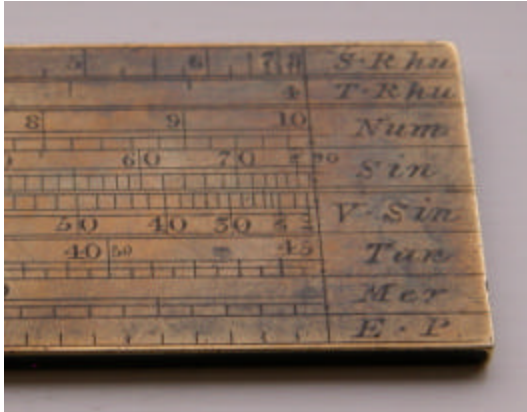 5 6 7 8 S·Rhu
4 T·Rhu
8 9 10 Num
60 70 90 Sin
50 40 30 V·Sin
40 50 45 Tan
Mer
E·P